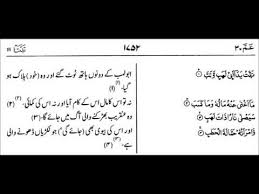 عَمَّ ۳۰
۱۷۵۲
تَبَّتْ يَدَا أَبِي لَهَبٍ وَتَبَّ
مَا أَغْنَىٰ عَنْهُ مَالُهُ وَمَا كَسَبَ
سَيَصْلَىٰ نَارًا ذَاتَ لَهَبٍ
وَامْرَأَتُهُ حَمَّالَةَ الْحَطَبِ
ابولہب کے دونوں ہاتھ ٹوٹ گئے اور وہ (خود) ہلاک ہو
گیا۔ (۱)
نہ تو اس کا مال اس کے کام آیا اور نہ اس کی کمائی۔ (۲)
وہ عنقریب بھڑکنے والی آگ میں جائے گا۔ (۳)
اور اس کی بیوی بھی (جائے گی) جو لکڑیاں ڈھونے والی
ہے۔